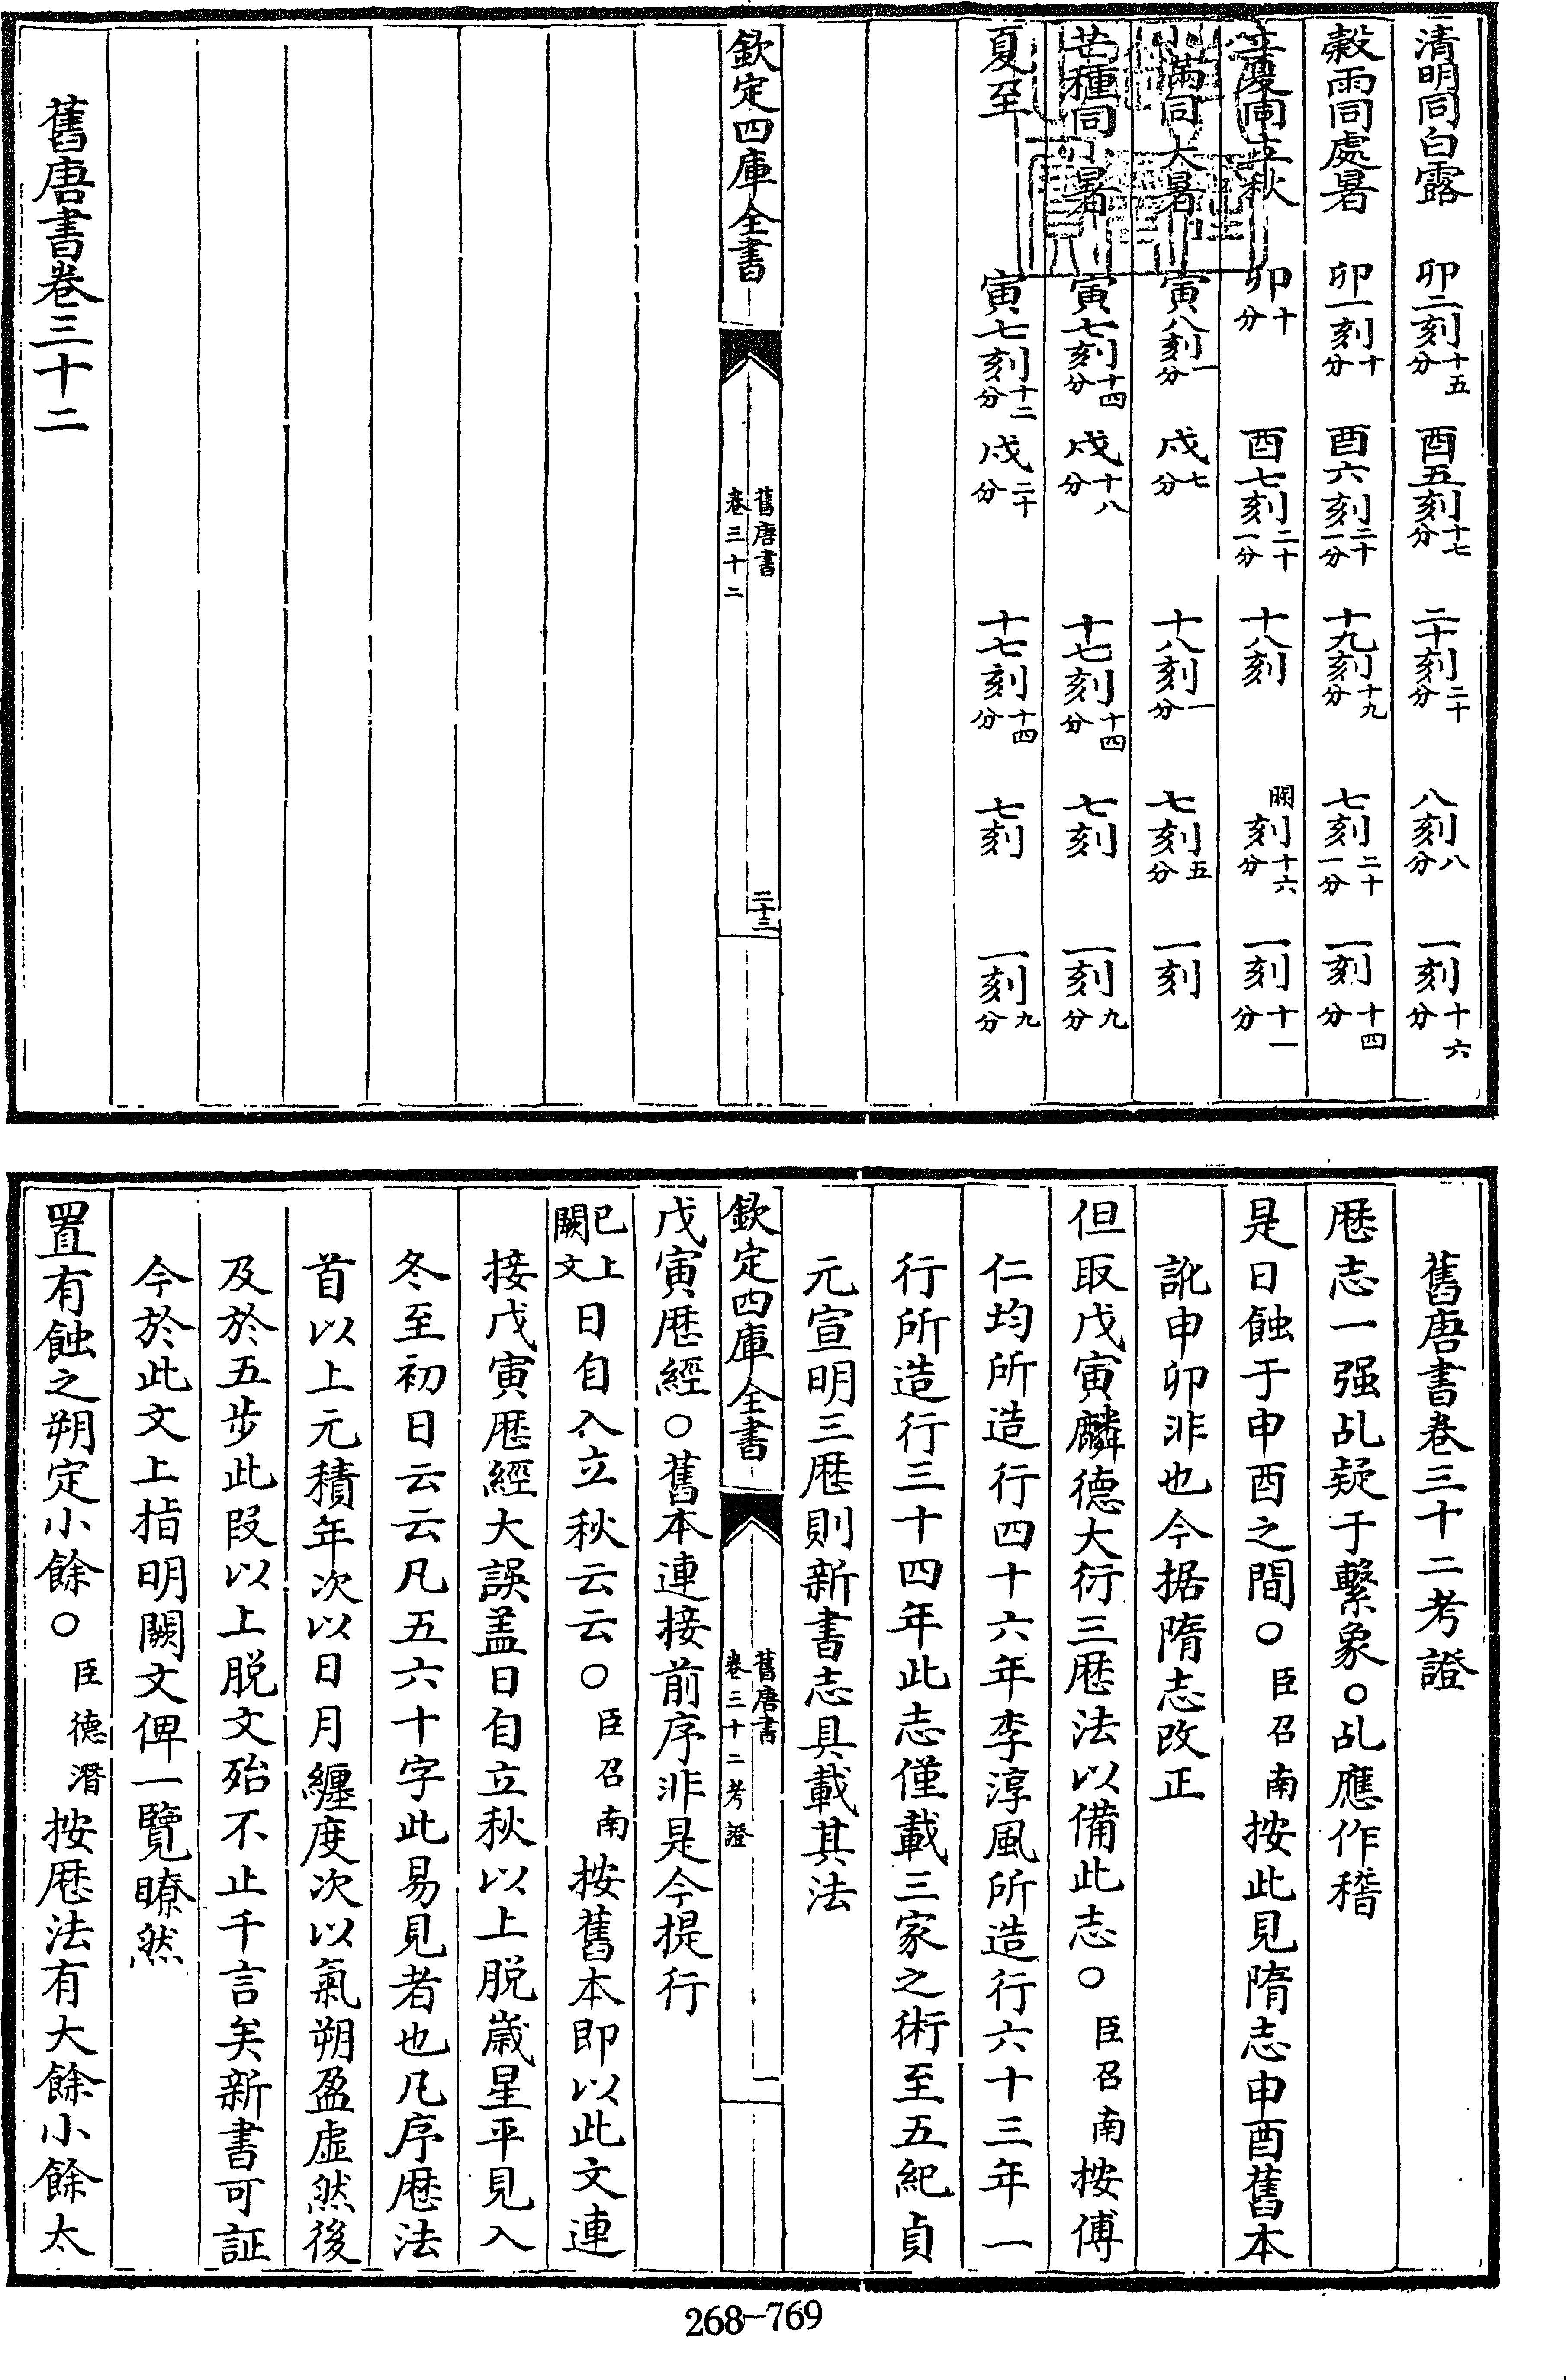 清明同白露　卯二刻十五分　酉五刻十七分　二十刻二十分　八刻八分　一刻十六分
穀雨同處暑　卯一刻十分　酉六刻二十一分　十九刻十九分　七刻二十一分　一刻十四分
立夏同立秋　卯十分　酉七刻二十一分　十八刻　闕刻十六分　一刻十一分
小滿同大暑　寅八刻一分　戌七分　十八刻一分　七刻五分　一刻
芒種同小暑　寅七刻十四分　戌十八分　十七刻十四分　七刻　一刻九分
夏至　寅七刻十二分　戌二十分　十七刻十四分　七刻　一刻九分
欽定四庫全書　舊唐書卷三十二　二十三
舊唐書卷三十二
舊唐書卷三十二考證
厯志一强乩疑于繫象○乩應作稽
是日蝕于申酉之間○臣召南按此見隋志申酉舊本
訛申卯非也今据隋志改正
但取戊寅麟德大衍三厯法以備此志○臣召南按傅
仁均所造行四十六年李淳風所造行六十三年一
行所造行三十四年此志僅載三家之術至五紀貞
元宣明三厯則新書志具載其法
欽定四庫全書　舊唐書卷三十二考證　一
戊寅厯經○舊本連接前序非是今提行
已上闕文日自入立秋云云○臣召南按舊本即以此文連
接戊寅厯經大誤盖日自立秋以上脱嵗星平見入
冬至初日云云凡五六十字此易見者也凡序厯法
首以上元積年次以日月纏度次以氣朔盈虚然後
及於五步此段以上脱文殆不止千言矣新書可証
今於此文上指明闕文俾一覽瞭然
置有蝕之朔定小餘○臣德潛按厯法有大餘小餘太
268-769